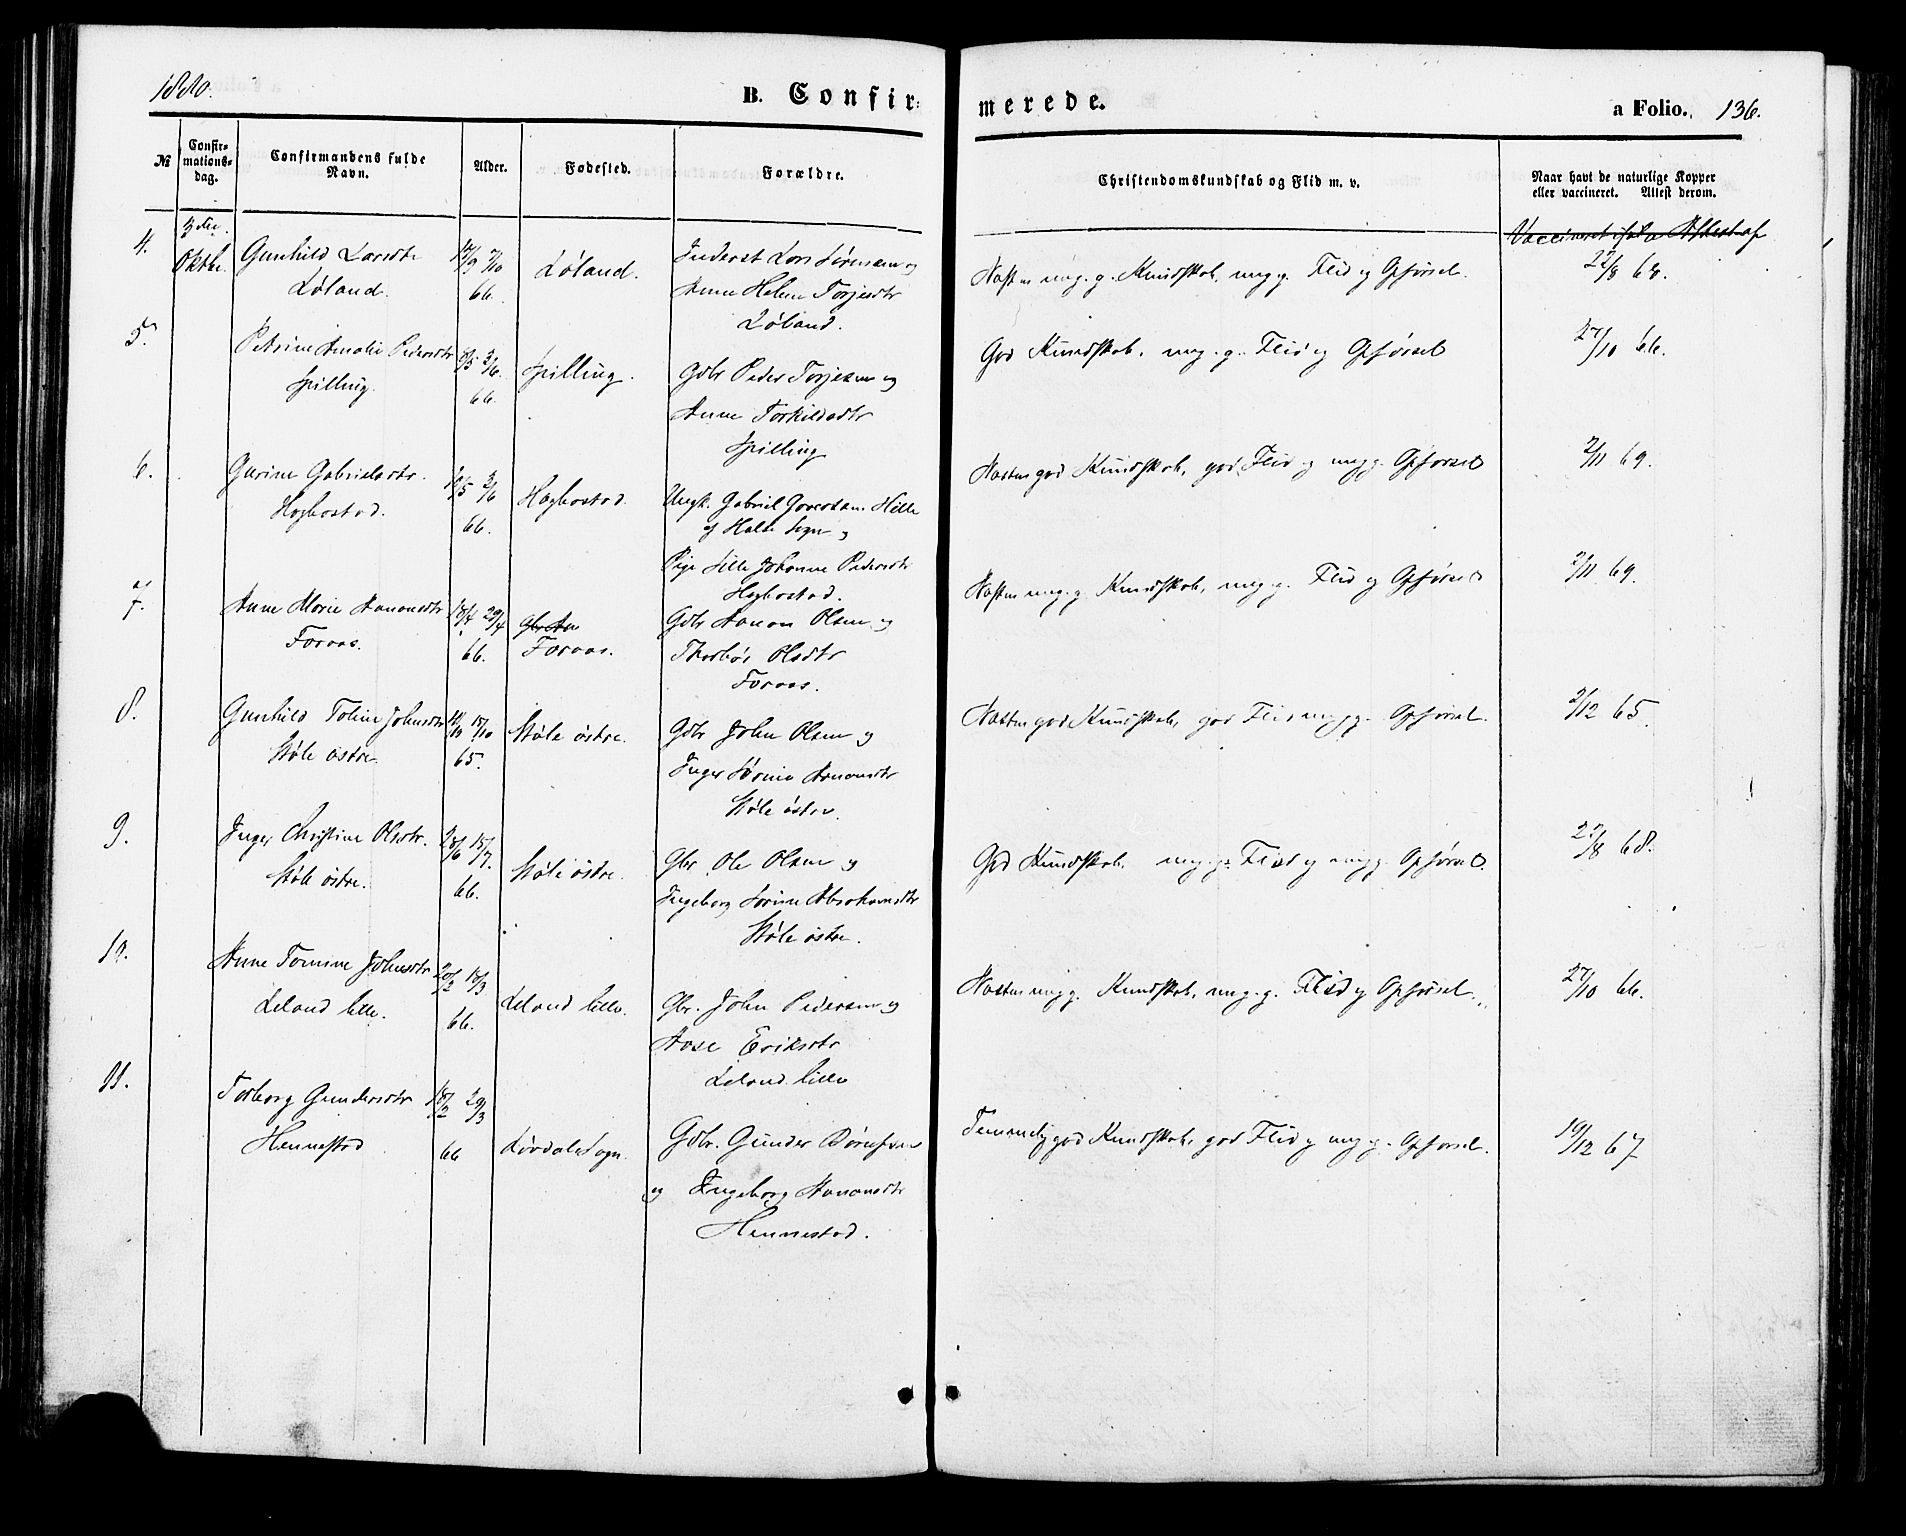 1880.
B. Confir-
merede.
a Folio. 136.
№
Confir-
mations-
dag.
Confirmandens fulde
Navn.
Alder.
Fødested.
Forældre.
Christendomskundskab og Flid m. v.
Naar havt de naturlige Kopper
eller vaccineret. Attest derom.
Vaccineret Attest af
4. 3die Oktbr. Gunhild Larsdtr
Løland.
17/9 7/10
66.
Løland.
Inderst Lars Sørensen og
Anne Helene Torjesdtr
Løland.
Næsten meg. g. Kundskab, meg. g. Flid og Opførsel.
22/8 68.
5. Petrine Amalie Pedersdtr
Spilling.
18/5 3/6
66.
Spilling.
Gdbr Peder Torjesen og
Anne Torkildsdtr
Spilling
God Kundskab, meg. g. Flid og Opførsel
27/10 66.
6. Gurine Gabrielsdtr.
Høgbostad.
3/6
66.
Høgbostad.
Ungk. Gabriel Hille
af Halse Sogn og
Pige Sille Johanne Pedersdtr
Høgbostad.
Næsten god Kundskab, god Flid og meg g. Opførsel
2/11 69.
7. Anne Marie Aanonsdtr
Foraas.
18/4 29/4
66.
Foraas.
Gdbr Aanon Olsen og
Thorbør Olsdtr
Foraas.
Næsten meg. g. Kundskab, meg. g. Flid og Opførsel
2/11 69.
8. Gunhild Toline Johnsdtr
Støle østre.
15/10
65.
Støle østre.
Gdbr John Olsen og
Inger Sørine Aanonsdtr
Støle østre.
Næsten god Kundskab, god Flid meg g. Opførsel.
2/12 65.
9. Inger Christine Olsdtr.
Støle østre.
28/6 15/7
66.
Støle østre.
Gbr. Ole Olsen og
Ingeborg Sørine Abrahamsdtr
Støle østre.
God Kundskab, meg. g. Flid og meg g. Opførsel.
27/8 68.
10. Anne Tomine Johnsdtr
Leland lille.
20/2 18/3
66.
Leland lille.
Gbr. John Pedersen og
Aase Eriksdtr
Leland lille
Næsten meg g. Kundskab, meg. g. Flid og Opførsel.
27/10 66.
11. Torborg Gundersdtr
Hennestad
18/2 29/3
66
Lørdals Sogn.
Gdbr. Gunder Børufsen
og Ingeborg Aanonsdtr
Hennestad.
Temmelig god Kundskab, god Flid og meg g. Opførsel.
19/12 67